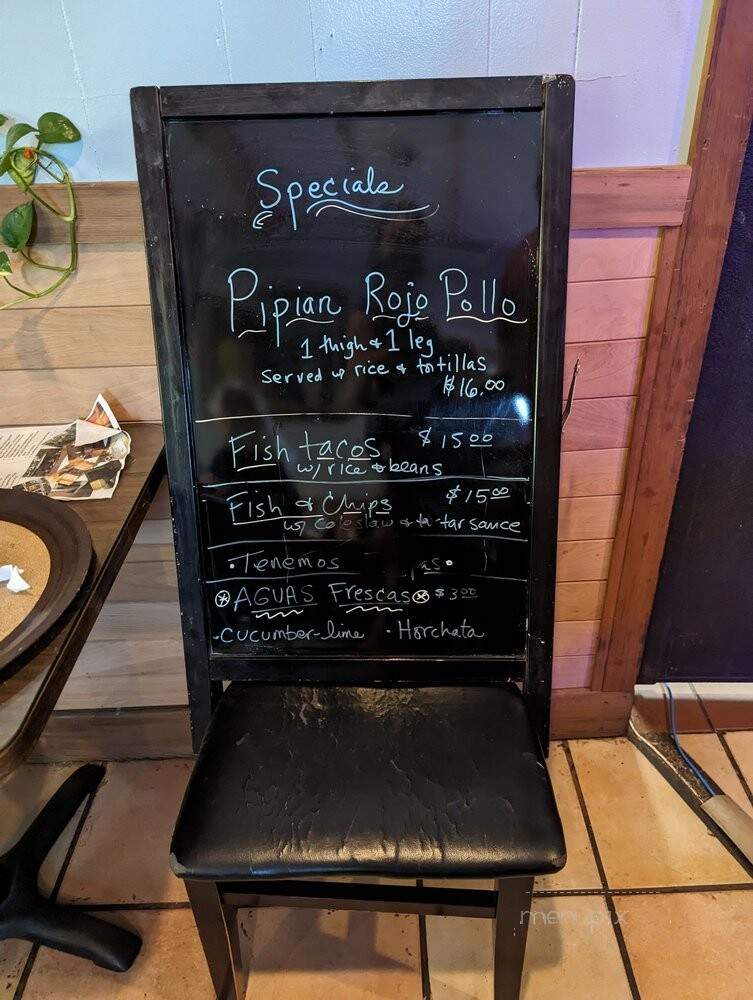 Specials
Pipian Rojo Pollo
1 thigh & 1 leg
Served w/ rice & tortillas
$16.00
Fish tacos $15.00
w/ rice & beans
Fish & Chips $15.00
w/ Coleslaw & ta-tar sauce
• Tenemos •
AGUAS Frescas $3.00
- Cucumber-lime • Horchata
menupix